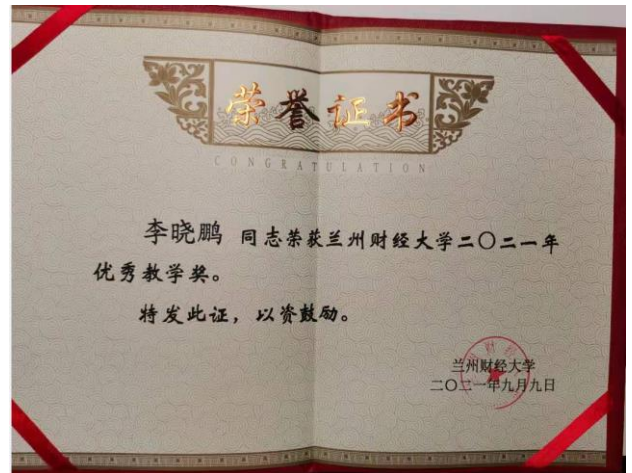 荣誉证书
CONGRATULATION
李晓鹏 同志荣获兰州财经大学二〇二一年
优秀教学奖。
特发此证，以资鼓励。
兰州财经大学
二〇二一年九月九日